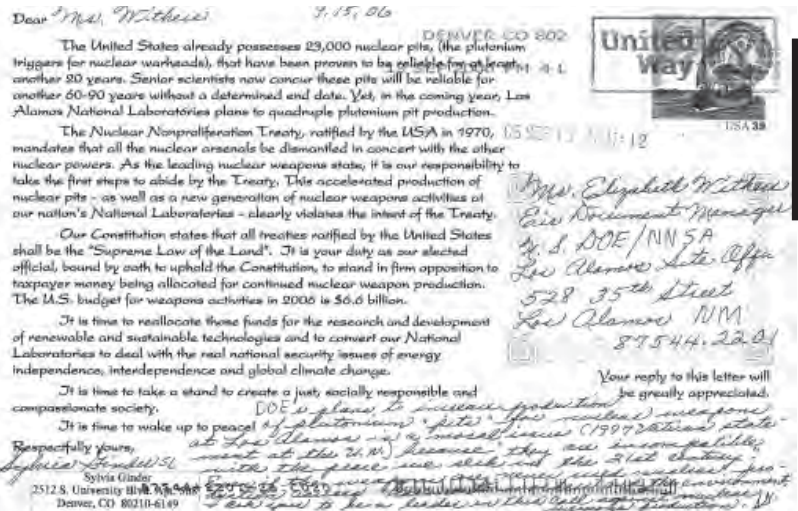 Dear Ms. Withers 9.15.06
DENVER CO 802
United Way
USA 39
The United States already possesses 23,000 nuclear pits, (the plutonium
triggers for nuclear warheads), that have been proven to be reliable for at least
another 20 years. Senior scientists now concur these pits will be reliable for
another 60-90 years without a determined end date. Yet, in the coming year, Los
Alamos National Laboratories plans to quadruple plutonium pit production.
The Nuclear Nonproliferation Treaty, ratified by the USA in 1970,
mandates that all the nuclear arsenals be dismantled in concert with the other
nuclear powers. As the leading nuclear weapons state, it is our responsibility to
take the first steps to abide by the Treaty. This accelerated production of
nuclear pits - as well as a new generation of nuclear weapons activities at
our nation's National Laboratories - clearly violates the intent of the Treaty.
Our Constitution states that all treaties ratified by the United States
shall be the "Supreme Law of the Land". It is your duty as our elected
official, bound by oath to uphold the Constitution, to stand in firm opposition to
taxpayer money being allocated for continued nuclear weapon production.
The U.S. budget for weapons activities in 2006 is $6.6 billion.
It is time to reallocate those funds for the research and development
of renewable and sustainable technologies and to convert our National
Laboratories to deal with the real national security issues of energy
independence, interdependence and global climate change.
It is time to take a stand to create a just, socially responsible and
compassionate society.
It is time to wake up to peace!
Respectfully yours,
Sylvia Ginder SL
Sylvia Ginder
2512 S. University Blvd.
Denver, CO 80210-6149
Ms. Elizabeth Withers
Eis Document Manager
U.S. DOE/NNSA
Los Alamos Site Office
528 35th Street
Los Alamos NM
87544-2201
Your reply to this letter will
be greatly appreciated.
DOE's plans to increase production
of plutonium "pits" for nuclear weapons
at Los Alamos is a moral issue (1997 Vatican state-
ment at the U.N.) because they are incompatible
with the peace we seek in the 21st century.
environment
ask you to be a leader in this